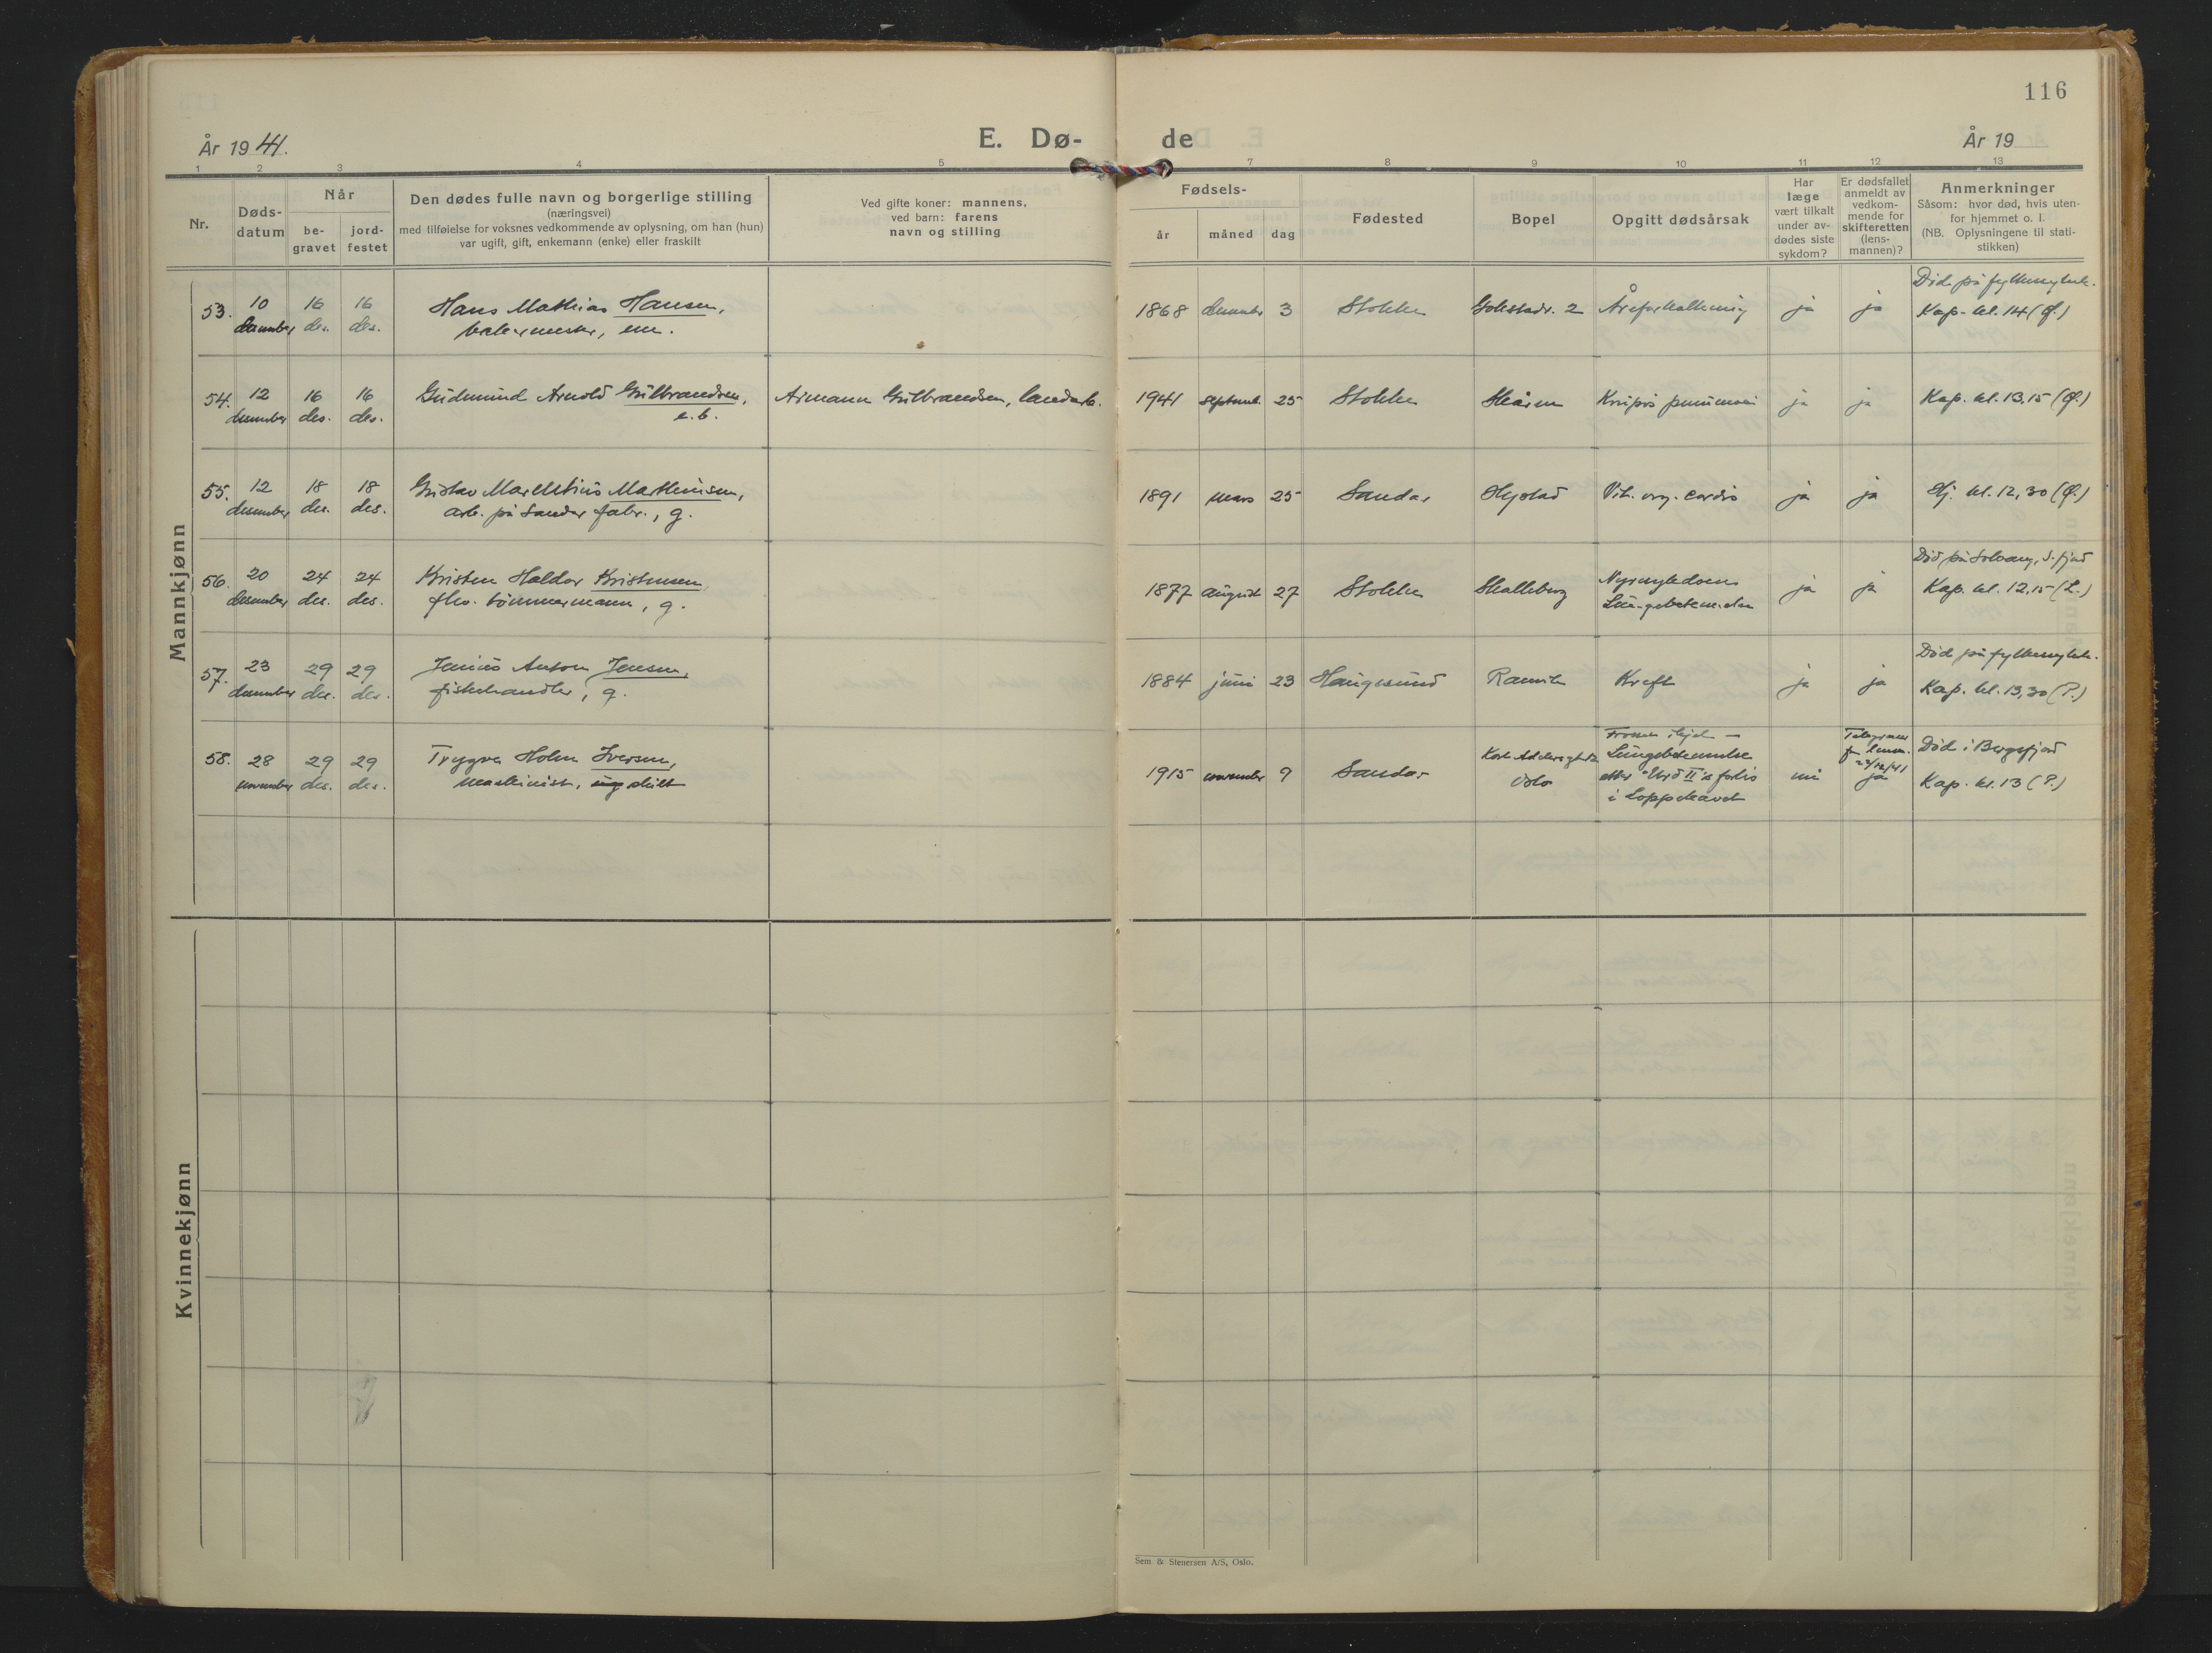 116
År 1941.
E. Dø-
de
År 19
1 2 3 4 5 7 8 9 10 11 12 13
Nr.
Døds-
datum
Når
be-
gravet
jord-
festet
Den dødes fulle navn og borgerlige stilling
(næringsvei)
med tilføielse for voksnes vedkommende av oplysning, om han (hun)
var ugift, gift, enkemann (enke) eller fraskilt
Ved gifte koner: mannens,
ved barn: farens
navn og stilling
Fødsels-
år måned dag
Fødested
Bopel
Opgitt dødsårsak
Har
læge
vært tilkalt
under av-
dødes siste
sykdom?
Er dødsfallet
anmeldt av
vedkom-
mende for
skifteretten
(lens-
mannen)?
Anmerkninger
Såsom: hvor død, hvis uten-
for hjemmet o. l.
(NB. Oplysningene til stati-
stikken)
Mannkjønn
53. 10 desember 16 des. 16 des.
Hans Mathias Hansen,
bakermester, em.
1868 desember 3 Stokke Gokstadv. 2 Åreforkalkning ja ja
Død på fylkessykeh.
Kap. kl. 14 (Ø.)
54. 12 desember 16 des. 16 des.
Gudmund Arnold Gulbrandsen,
e.b.
Armann Gulbrandsen, landarb.
1941 septemb. 25 Stokke Skåren Krupøs pneumoni ja ja
Kap. kl. 13,15 (Ø.)
55. 12 desember 18 des. 18 des.
Gustav Marelius Mathisen,
arb. på Sandar fabr., g.
1891 mars 25 Sandar Hystad Vit. org. cordis ja ja
Hj. kl. 12,30 (Ø.)
56. 20 desember 24 des. 24 des.
Kristen Haldor Kristensen
fhv. tømmermann, g.
1877 august 27 Stokke Skalleberg
Nyresykdom
Lungebetennelse
ja ja
Død på Solvang, S.fjord
Kap. kl. 12,15 (L.)
57. 23 desember 29 des. 29 des.
Jenius Anton Jensen,
fiskehandler, g.
1884 juni 23 Haugesund Ranvik Kreft ja ja
Død på fylkessykeh.
Kap. kl. 13,30 (P.)
58. 28 november 29 des. 29 des.
Trygve Holm Iversen,
maskinist, skilt
1915 november 9 Sandar
Oslo
Frossen ihjel –
Lungebetennelse
etter "Urd II"s forlis
i Loppehavet
nei
Telegram
fr. lensm.
23/12/41
ja
Død i Bergsfjord
Kap. kl. 13 (P.)
Kvinnekjønn
Sem & Stenersen A/S, Oslo.